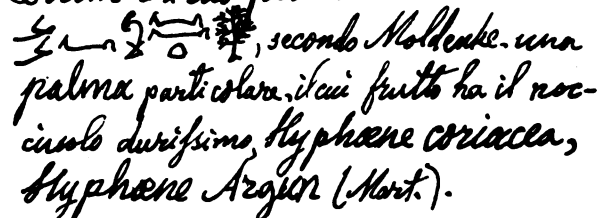 , secondo Moldenke. una
palma particolare, il cui frutto ha il noc-
ciuolo durissimo, Hyphæne coriacea,
Hyphæne Argun (Mart.).